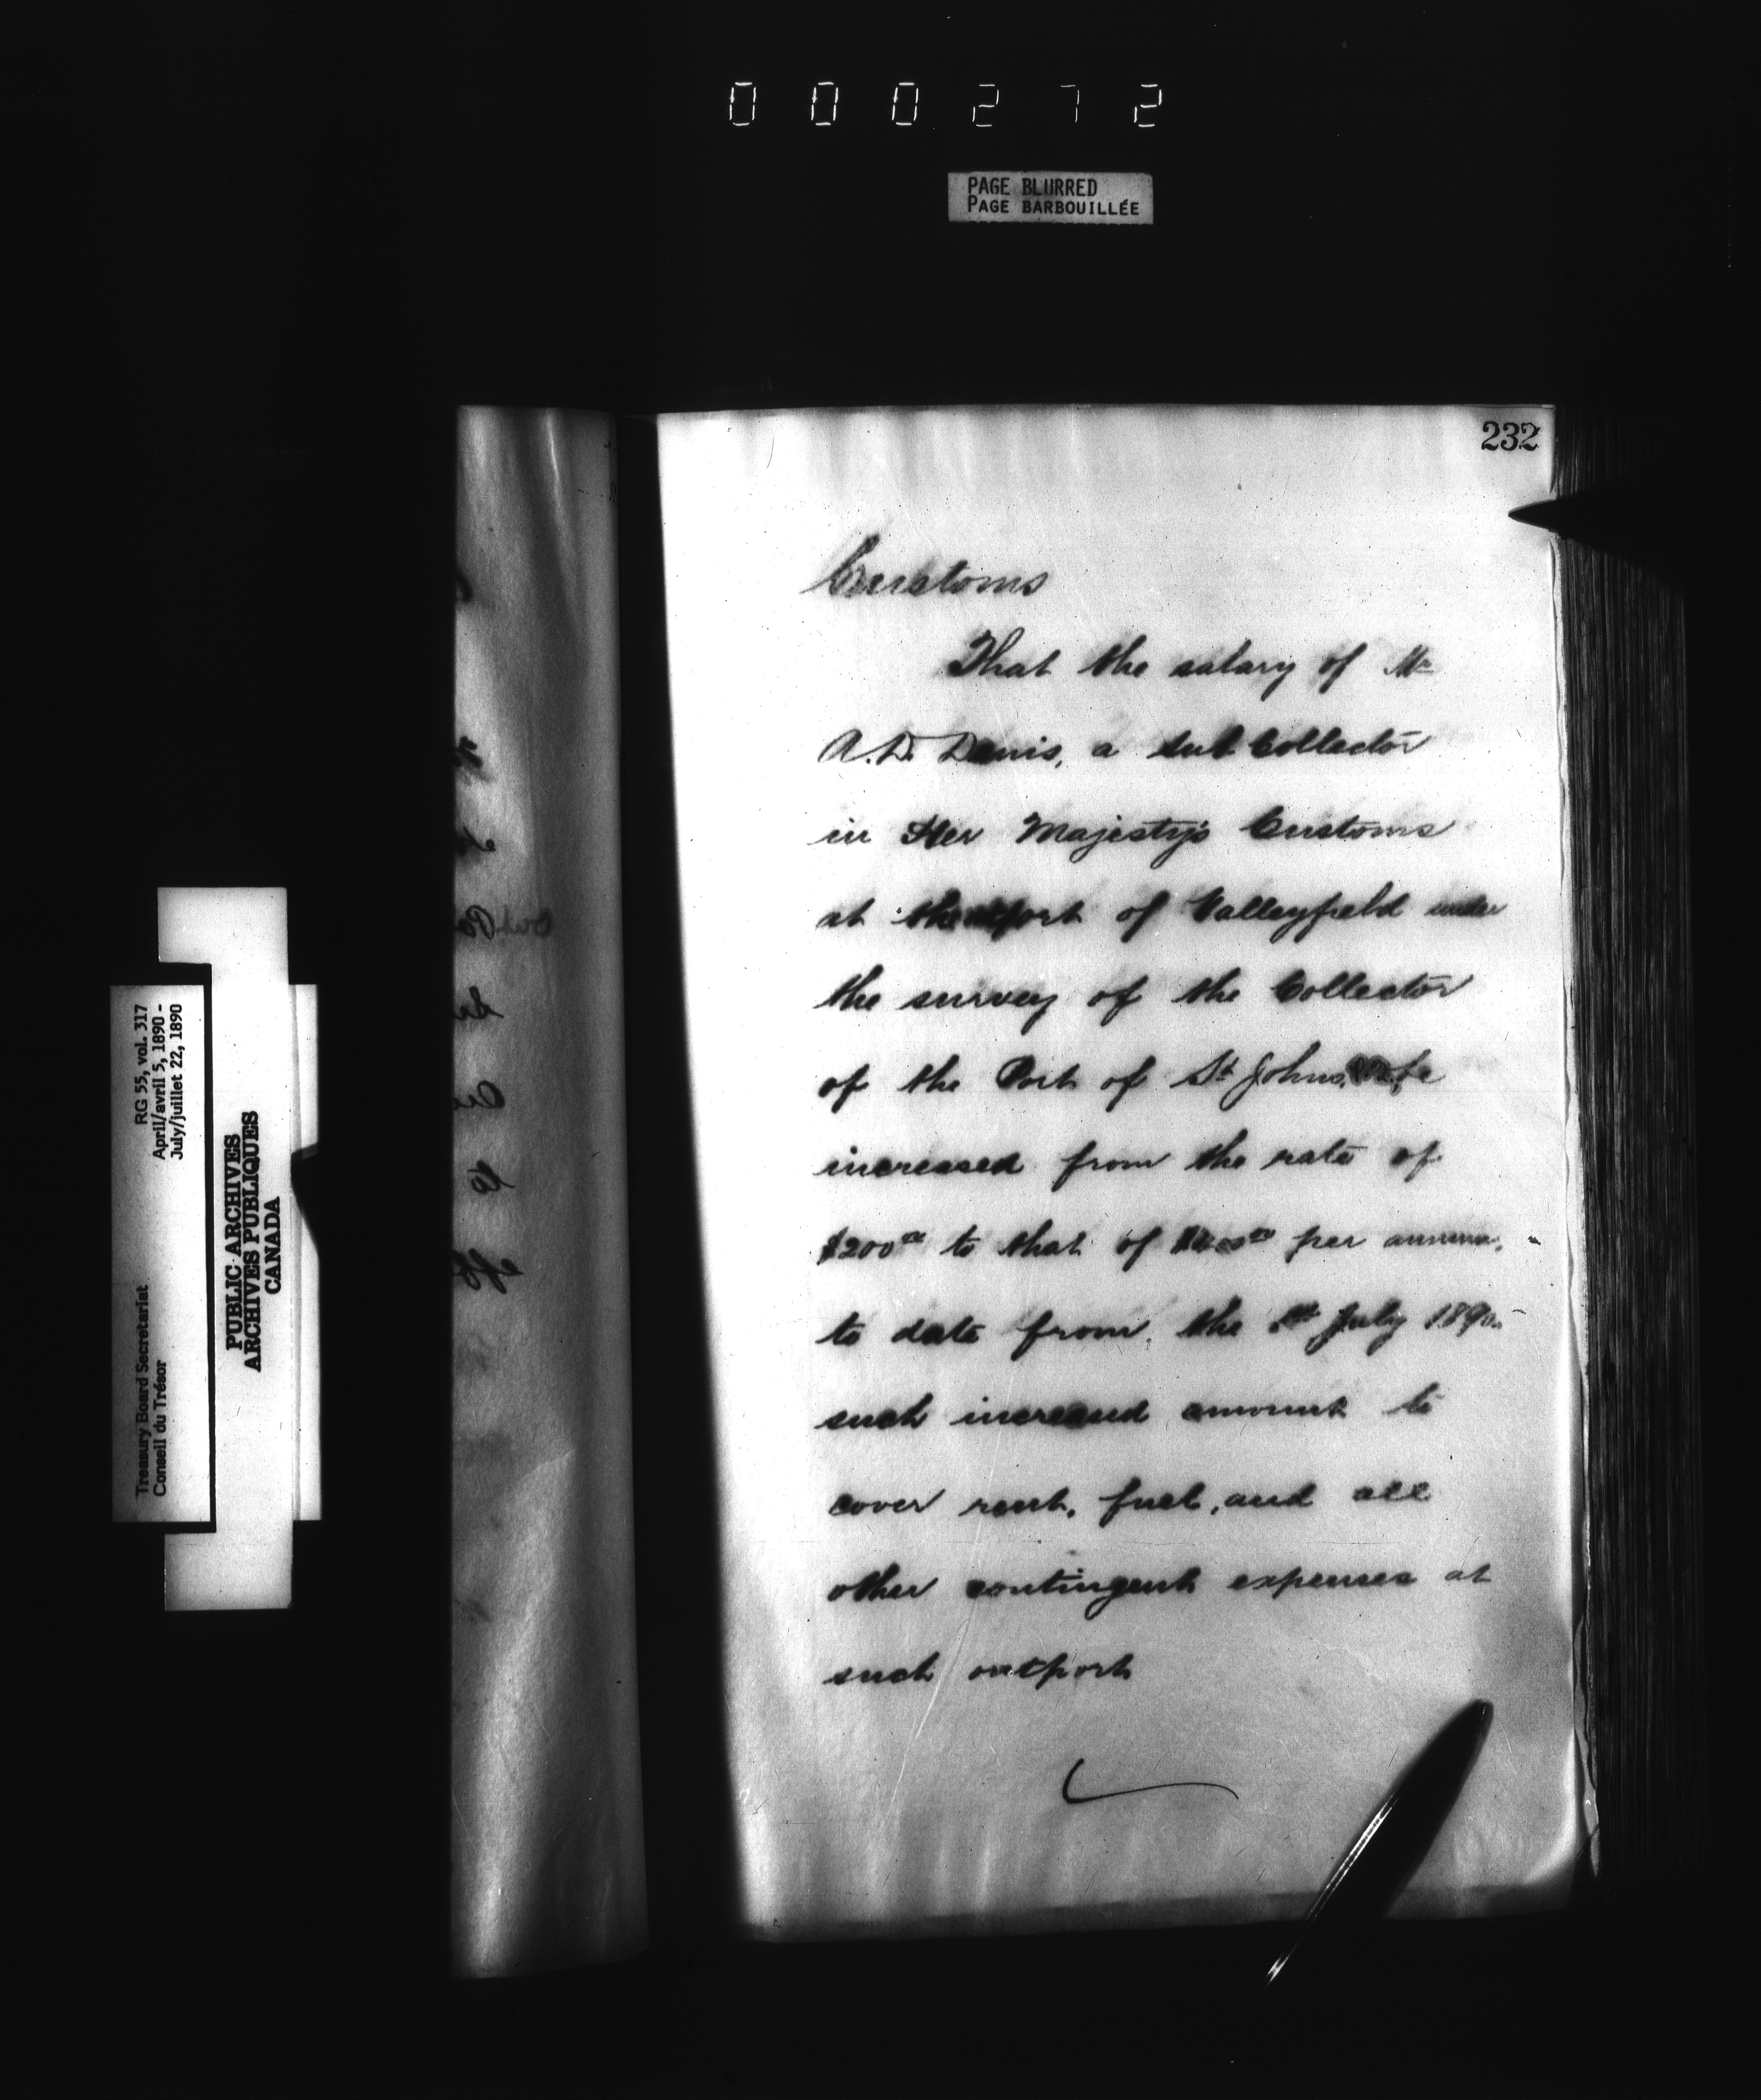 000272
PAGE BLURRED
PAGE BARBOUILLÉE
232
Customs
That the salary of Mr
A. D. Denis, a sub Collector
in Her Majesty's Customs
at the outport of Valleyfield under
the survey of the Collector
of the Port of St Johns, be
increased from the rate of
$200 00 to that of per annum,
to date from the 1st July 1890
such increased amount to
cover rent, fuel, and all
other contingent expenses at
such outport
RG 55, vol. 317
April/avril 5, 1890 -
July/juillet 22, 1890
Treasury Board Secretariat
Conseil du Trésor
PUBLIC ARCHIVES
ARCHIVES PUBLIQUES
CANADA